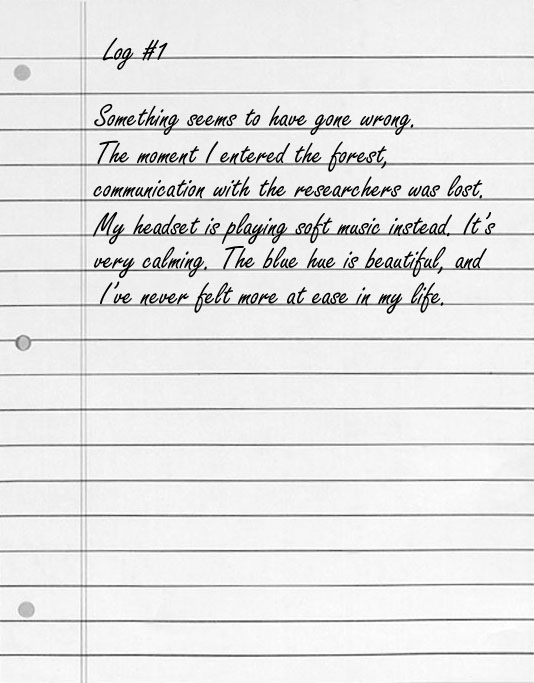 Log #1
Something seems to have gone wrong.
The moment I entered the forest,
communication with the researchers was lost.
My headset is playing soft music instead. It's
very calming. The blue hue is beautiful, and
I've never felt more at ease in my life.